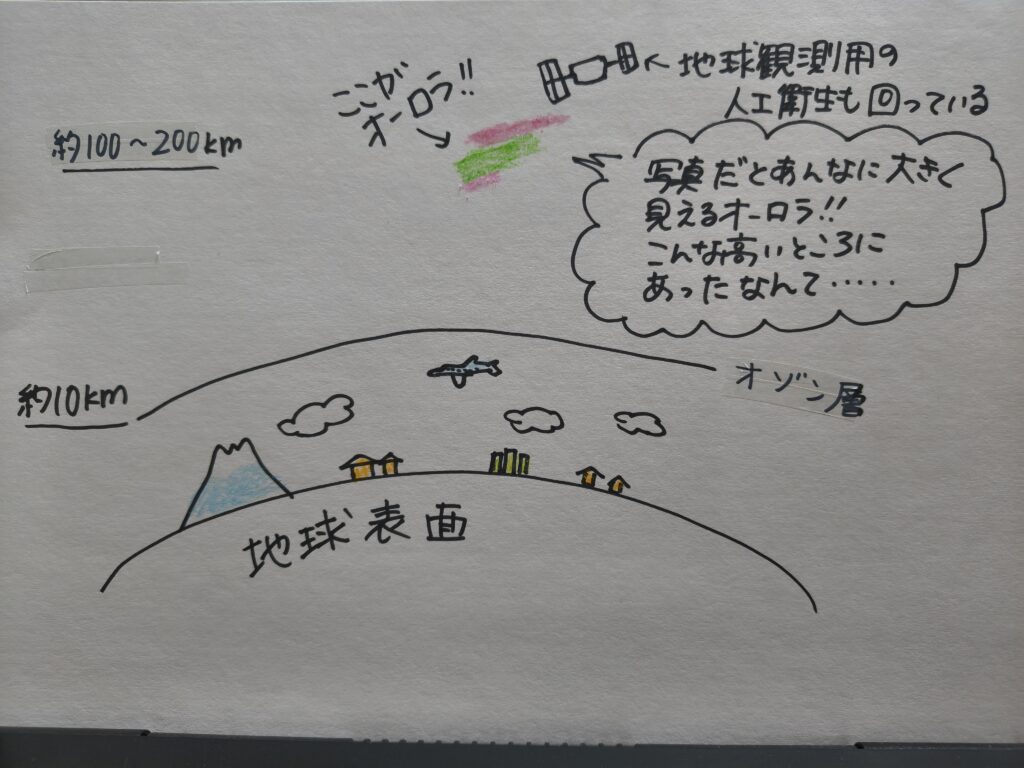 ここが
オーロラ!!
地球観測用の
人工衛生も回っている
約100～200km
写真だとあんなに大きく
見えるオーロラ!!
こんな高いところに
あったなんて・・・・・
約10km
オゾン層
地球表面